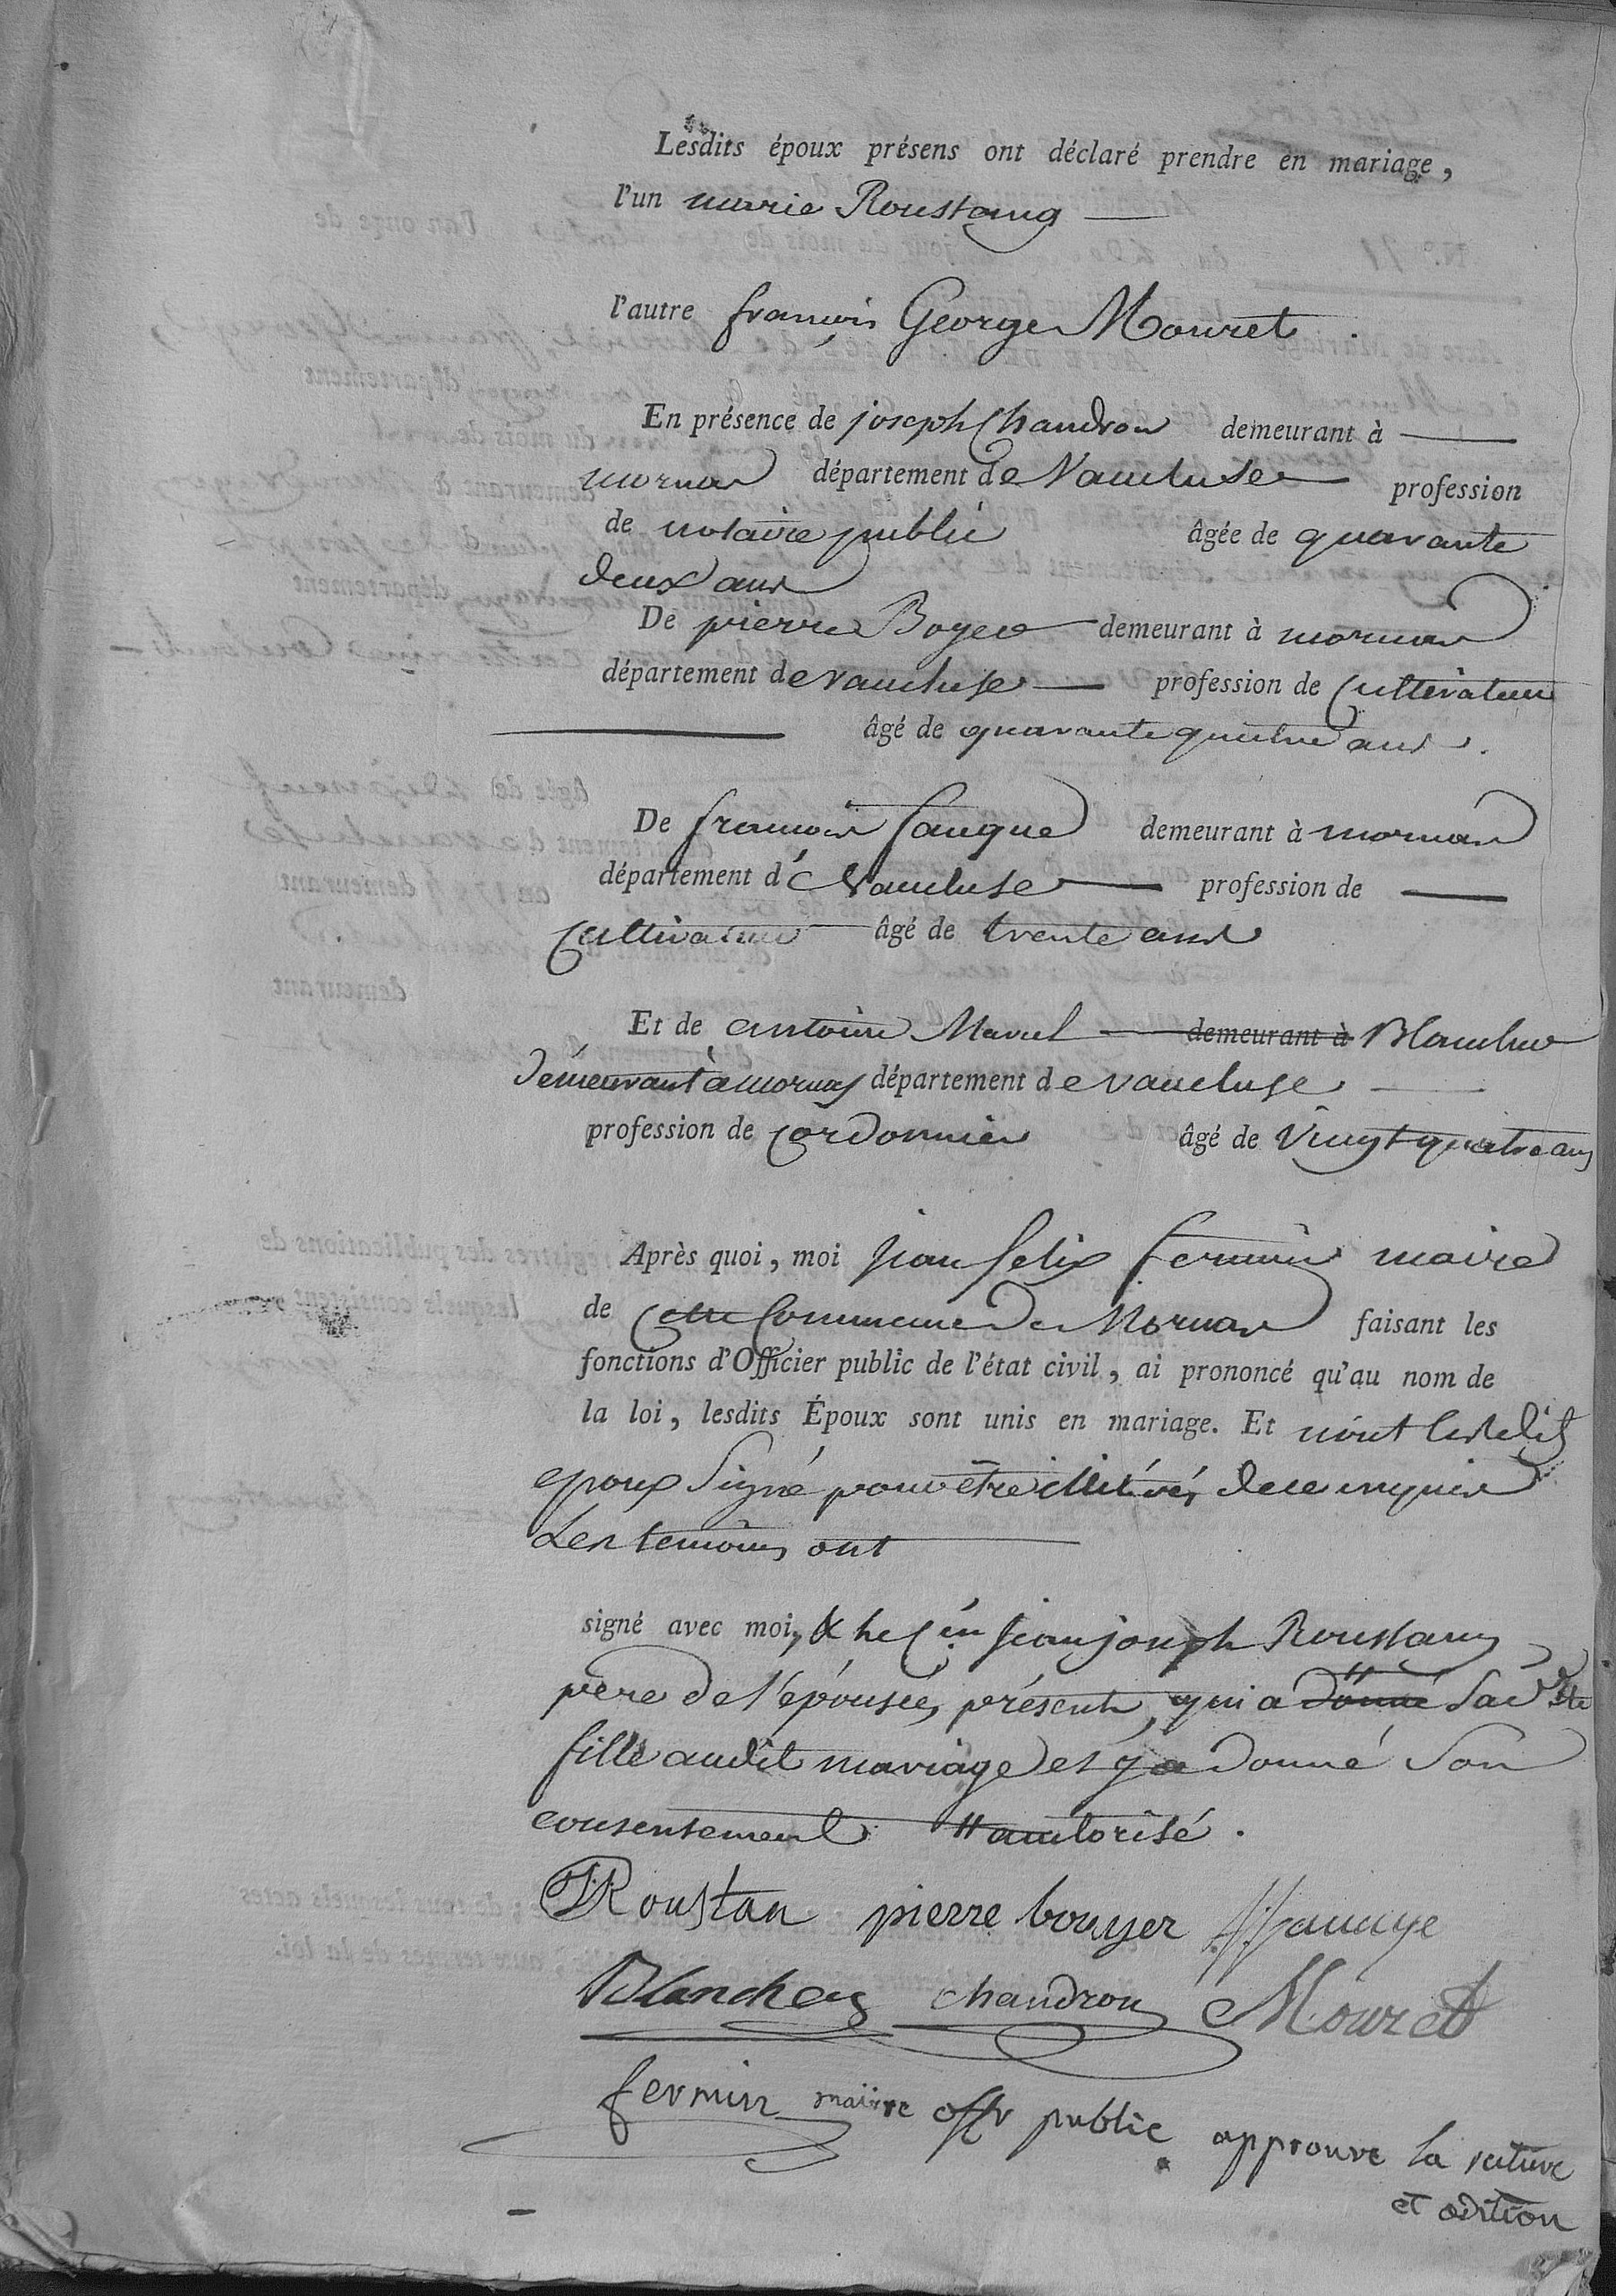 Lesdits époux présens ont déclaré prendre en mariage,
l'un marie Roustang
l'autre françois George Mouret
En présence de joseph Chandron demeurant à
mornas département de Vaucluse profession
de notaire public âgée de quarante
deux ans
De pierre Boyer demeurant à mornas
département de vaucluse profession de Cultivateur
âgé de quarante quatre ans.
De françois fauque demeurant à mornas
département de Vaucluse profession de
Cultivateur âgé de trente ans
Et de antoine Marcel demeurant à Blancher
demeurant à mornas département de vaucluse
profession de Cordonnier âgé de Vingt quatre ans
Après quoi, moi jean felix fermin maire
de Cette Commune de Mornas faisant les
fonctions d'Officier public de l'état civil, ai prononcé qu'au nom de
la loi, lesdits Époux sont unis en mariage. Et n'ont lesdits
epoux Signé pour être illitérés de ce enquis
Les temoins ont
signé avec moi, & le C.en jean joseph Roustang
père de l'épousée, présent, qui a donné Sa dte
fille audit mariage et y a donné Son
consentement # autorisé.
Roustan pierre bouyer fauque
Blancher chandron Mouret
fermin maire offr public approuve la rature
et adition